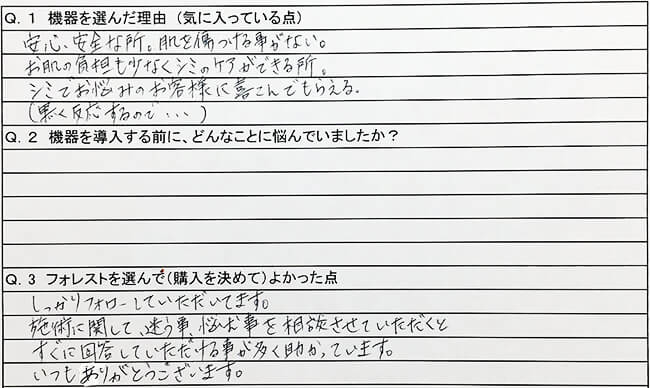 Q. 1 機器を選んだ理由（気に入っている点）
安心、安全な所。肌を傷つける事がない。
お肌の負担も少なくシミのケアができる所。
シミでお悩みのお客様に喜こんでもらえる。
（黒く反応するので・・・）
Q. 2 機器を導入する前に、どんなことに悩んでいましたか？
Q. 3 フォレストを選んで（購入を決めて）よかった点
しっかりフォローしていただいてます。
施術に関して、迷う事、悩む事を相談させていただくと
すぐに回答していただける事が多く助かっています。
いつもありがとうございます。